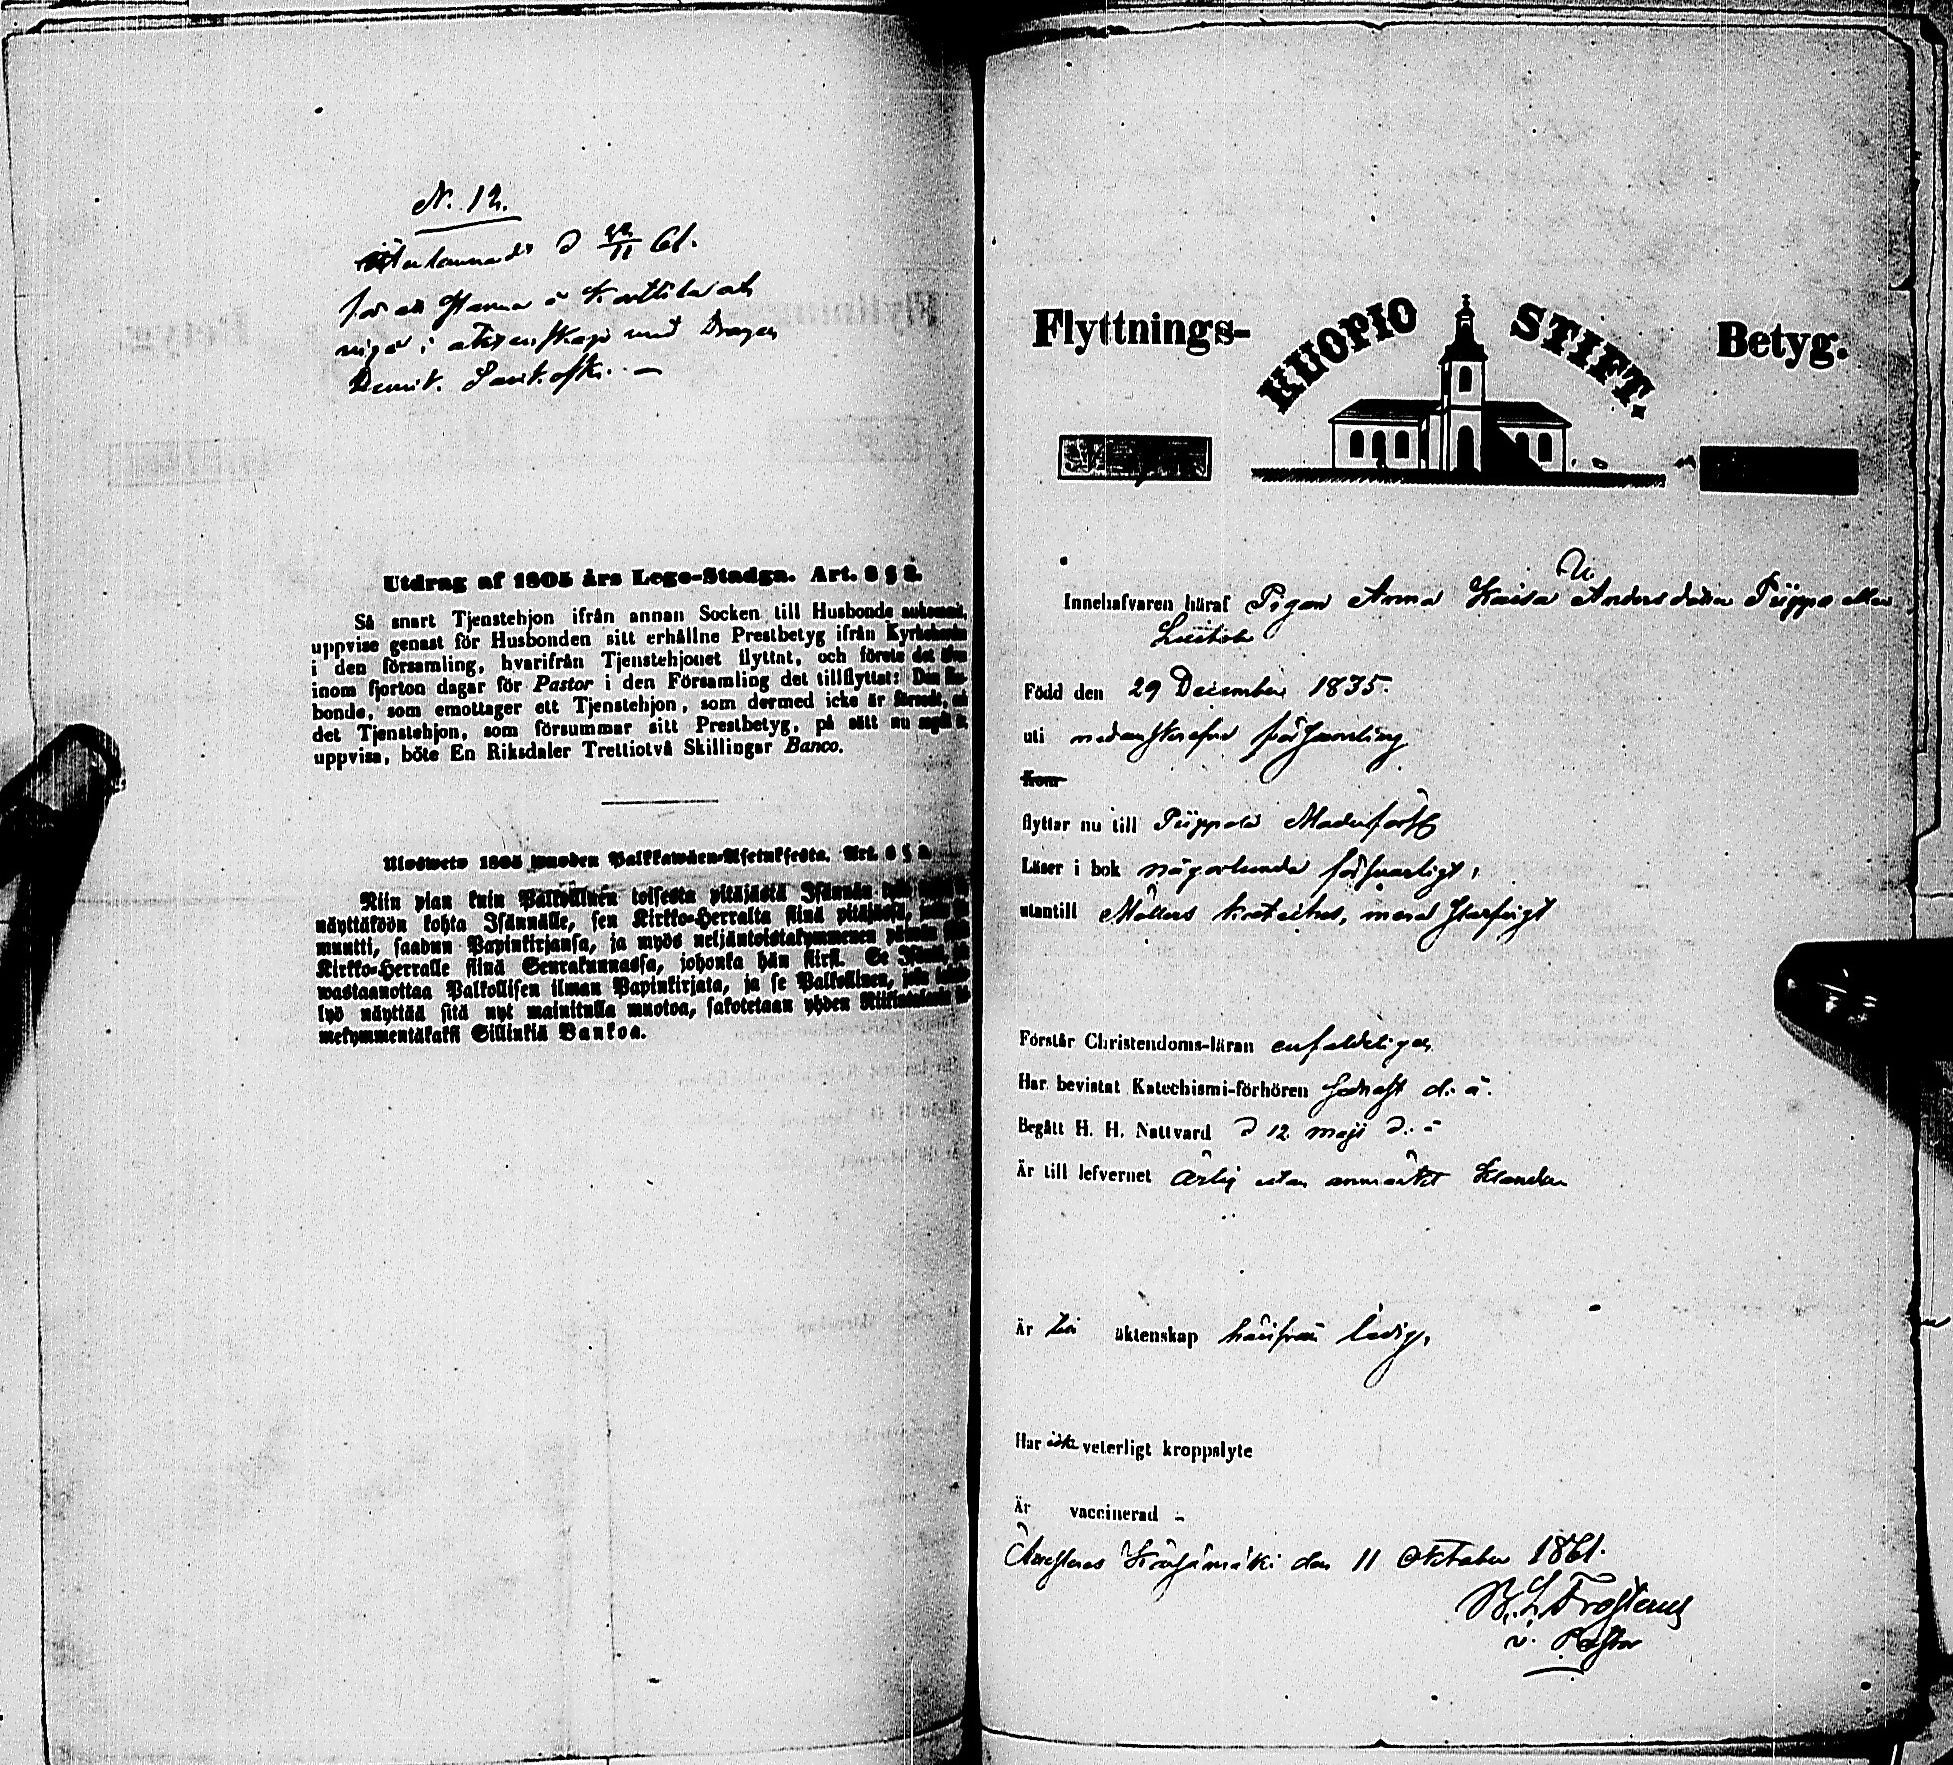 N. 12.
Återlemnades d 22/11 61.
för att stanna i Korttila och
ingå i äktenskap med Dragon
Demit.
Utdrag af 1805 års Lego-Stadga. Art. 8 § 2.
Så snart Tjenstehjon ifrån annan Socken till Husbonde ankommit,
uppvise genast för Husbonden sitt erhållne Prestbetyg ifrån Kyrkoherden
i den församling, hvarifrån Tjenstehjonet flyttat, och förete det
inom fjorton dagar för Pastor i den Församling det tillflyttat: Den Hus-
bonde, som emottager ett Tjenstehjon, som dermed icke är försedt,
det Tjenstehjon, som försummar sitt Prestbetyg, på sätt nu sagdt är
uppvisa, böte En Riksdaler Trettiotvå Skillingar Banco.
Uloswete 1805 wuoden Palkkawäen-Asetuksesta. Art. 8 § 2.
Niin pian kuin Palkollinen toisesta pitäjästä Isännän
näyttäköön kohta Isännälle, sen Kirkko-Herralta siinä pitäjässä,
muutti, saadun Papinkirjansa, ja myös neljäntoistakymmenen päiwän
Kirkko-Herralle siinä Seurakunnassa, johonka hän siirsi. Se Isäntä,
wastaanottaa Palkollisen ilman Papinkirjata, ja se Palkollinen, joka
lyö näyttää sitä nyt mainitulla muotoa, sakotetaan yhden Riikintalarin
mekymmentäkaksi Sillinkiä Bankoa.
Flyttnings-
KUOPIO STIFT.
Betyg.
Innehafvaren häraf Pigan Anna Kaisa Andersdotter Piippo eller
Född den 29 December 1835.
uti nedanskrefne församling
Kom
flyttar nu till Piippola Moderförs.
Läser i bok någorlunda försvarligt,
utantill Möllers kateches, med
Förstår Christendoms-läran enfaldeligen
Har bevistat Katechismi-förhören sednast d. å.
Begått H. H. Nattvard d 12 maji d. å
Är till lefvernet ärlig utan anmärkt klander
Är till äktenskap härifrån ledig,
Har icke veterligt kroppslyte
Är vaccinerad -
Kärsämäki den 11 Oktober 1861.
Frosterus
v. Pastor